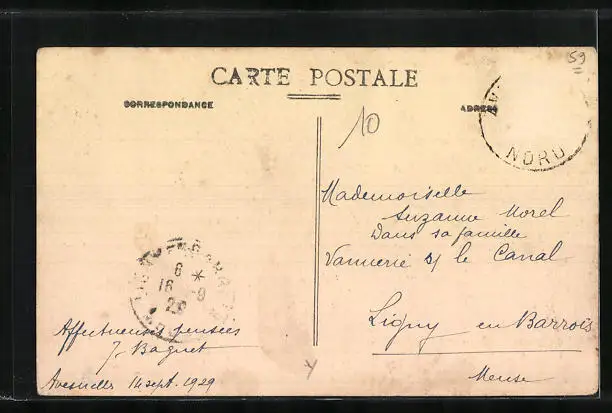 59
CARTE POSTALE
CORRESPONDANCE
ADRESSE
10
NORD
Mademoiselle
Suzanne Morel
Dans sa famille
Vannerie s/ le Canal
Ligny en Barrois
Meuse
6
16 -9
29
Affectueuses pensées
J. Baquet
Avesnelles 14 sept. 1929